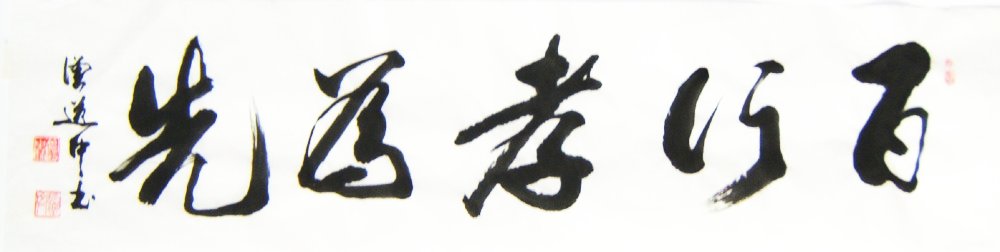 百行孝為先